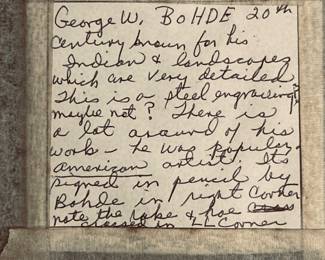 George W. BOHDE 20th
Century known for his
Indian & landscapes
which are very detailed
This is a steel engraving?
maybe not? There is
a lot around of his
work - he was popular
american artist. Its
signed in pencil by
Bohde in right corner
note the rake & hoe
crossed in LL Corner